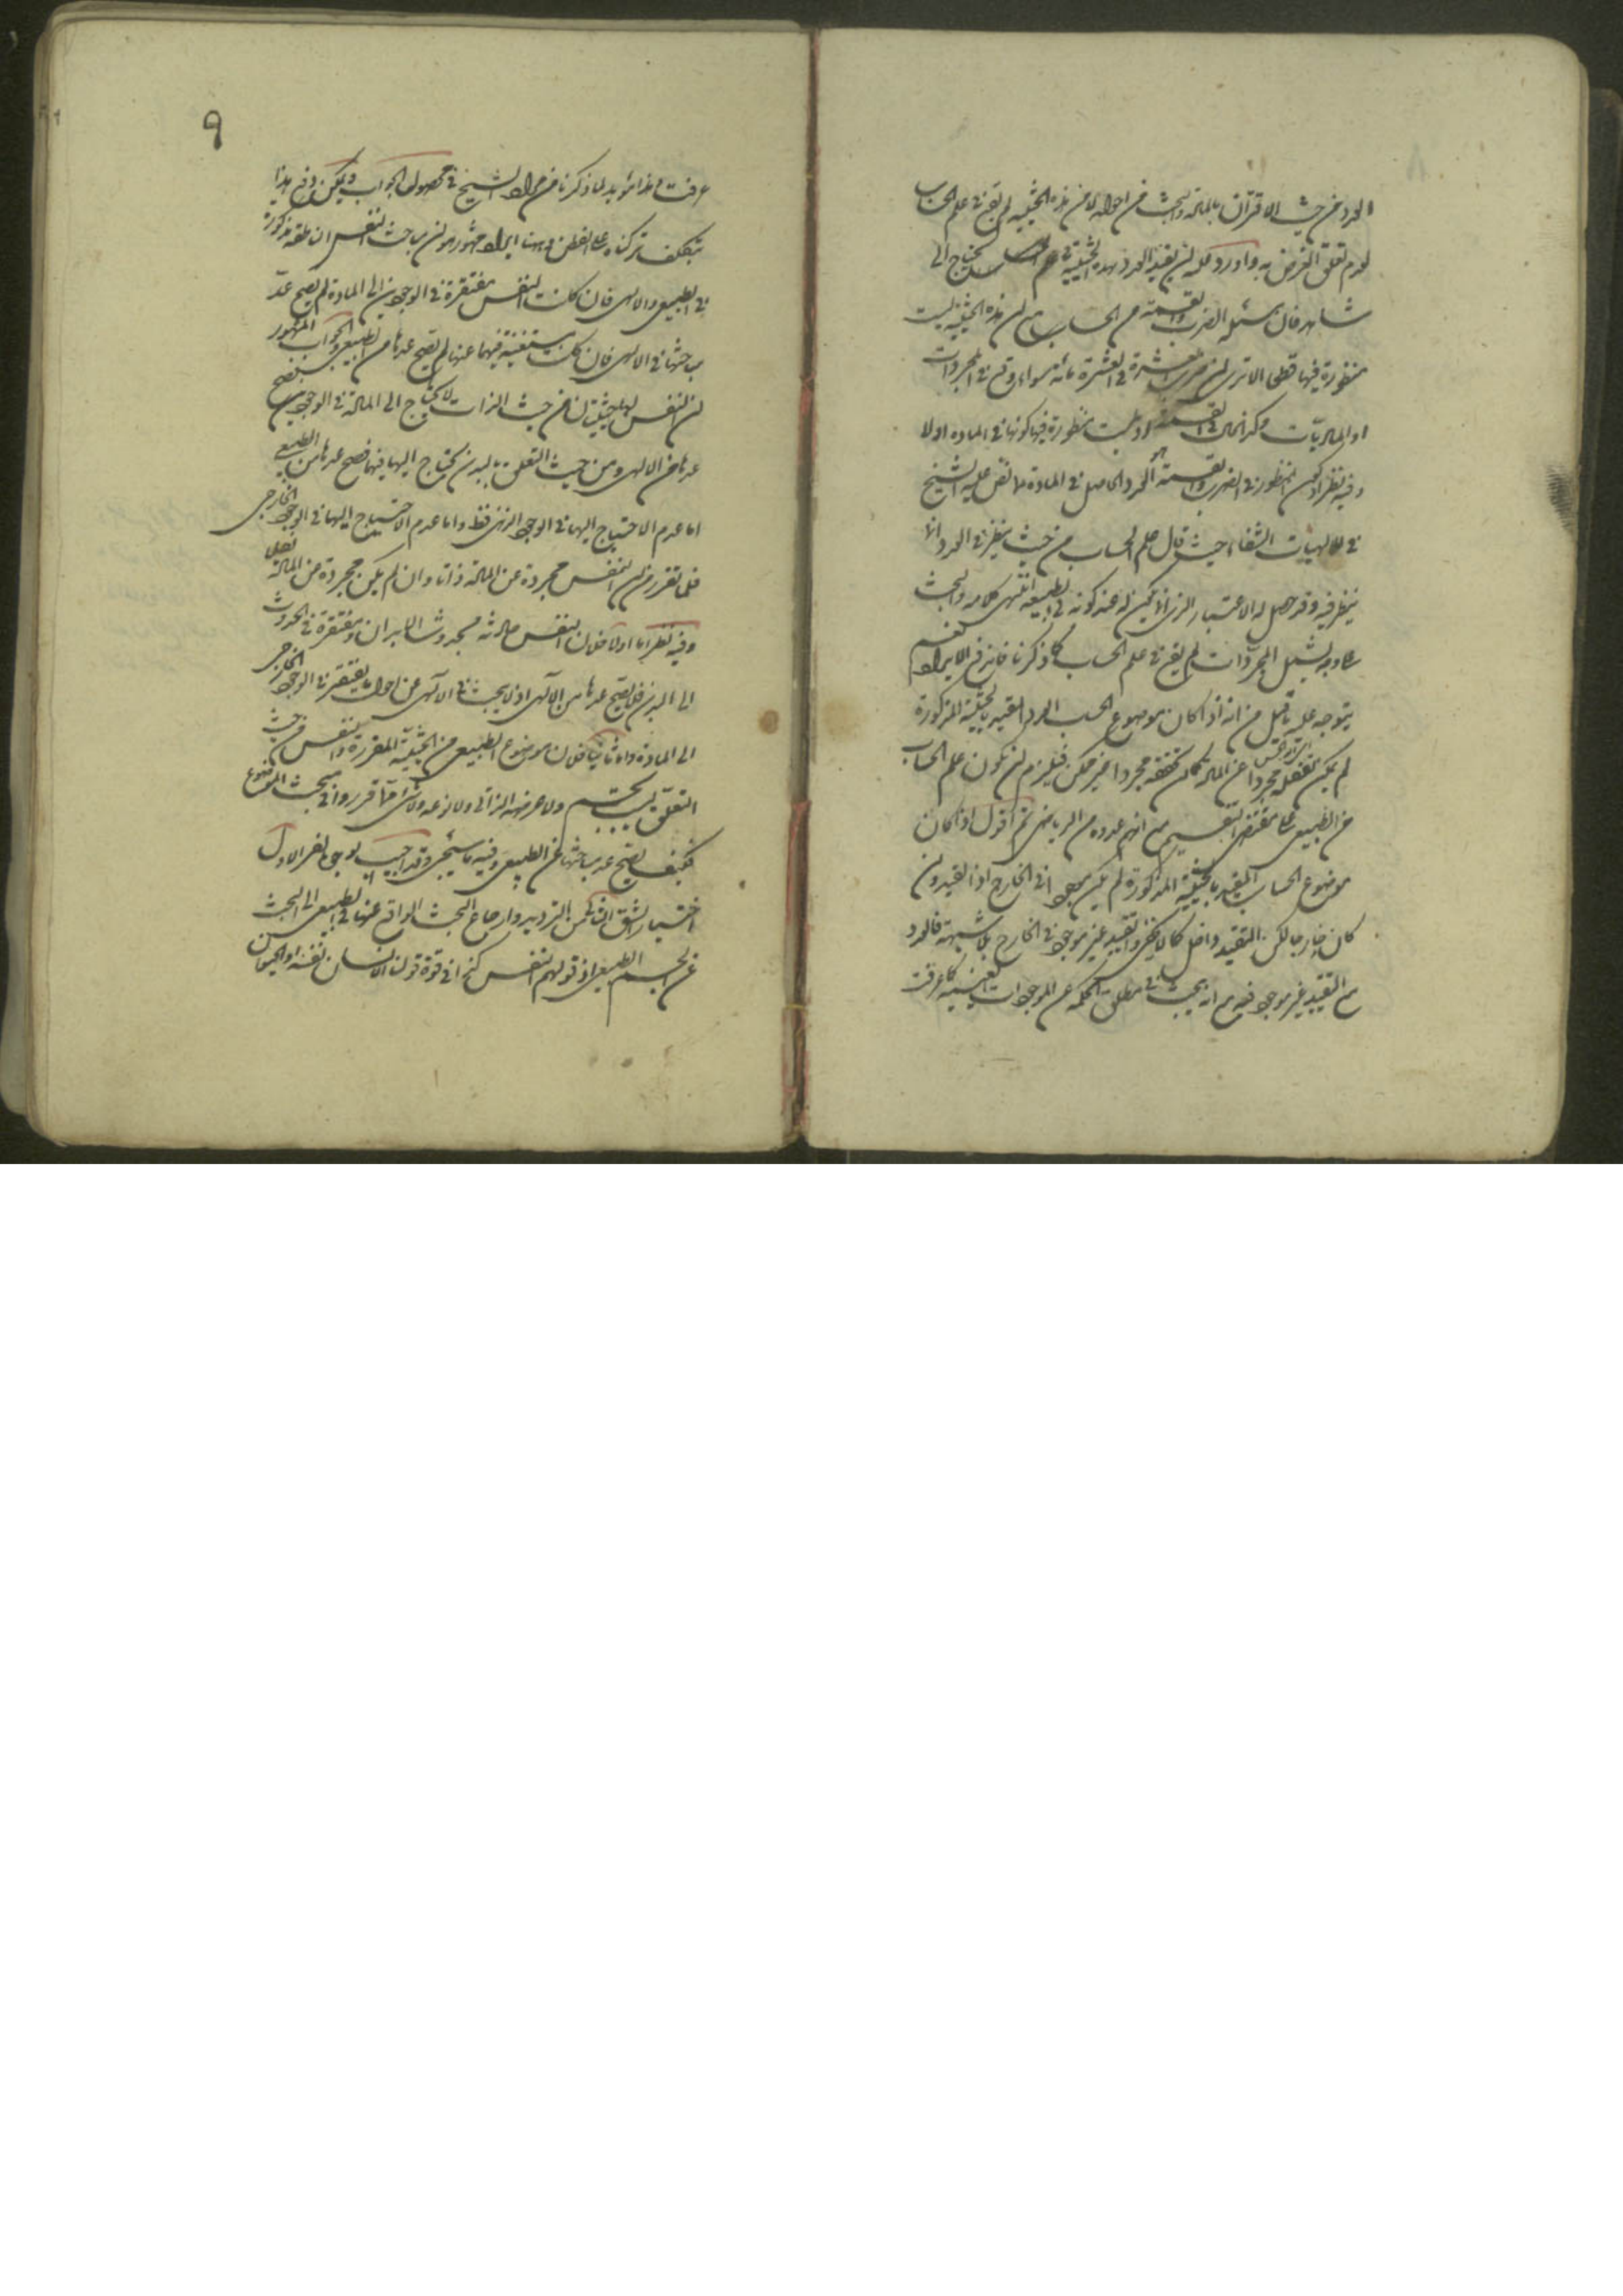 العدد من حيث الاقتران بالمادة والبحث عن احواله لا من هذه الحيثية لم يقع في علم الحساب
لعدم تعلق الغرض به واورد عليه ان تقييد العدد بهذه الحيثية في علم الحساب يحتاج الى
شاهد فان مسئلة الضرب والقسمة من الحساب مع ان هذه الحيثية ليست
منظورة فيها قطعا الا ترى ان ضرب العشرة في العشرة مائة سواء وقع في المجردات
او الماديات وكذا الحال في القسمة اذ ليست منظورة فيها كونها في المادة او لا
وفيه نظر اذ المنظور في الضرب والقسمة هو العدد الحاصل في المادة كما نص عليه الشيخ
في الهيات الشفاء حيث قال علم الحساب من حيث ينظر في العدد انما
ينظر فيه وقد حصل له الاعتبار الذي انما يكون له عند كونه في الطبيعة انتهى كلامه والبحث
على وجه يشمل المجردات لم يقع في علم الحساب كما ذكرنا فاندفع الايراد نعم
يتوجه عليه ما قيل من انه اذا كان موضوع الحساب العدد المقيد بالحيثية المذكورة
لم يكن تعقله مجردا عن المادة كما ان تحققه مجردا غير ممكن فيلزم ان يكون علم الحساب
من الطبيعي على مقتضى التقسيم مع انهم عدوه من الرياضي ثم اقول اذا كان
موضوع الحساب المقيد بالحيثية المذكورة لم يكن موجودا في الخارج اذ القيد وان
كان خارجا لكن التقييد داخل كما لا يخفى والتقييد غير موجود في الخارج بلا شبهة فالعدد
مع التقييد غير موجود فيه مع انه يبحث في مطلق الحكمة عن الموجودات العينية كما عرفت
٩
عرفت وهذا مؤيد لما ذكرنا من مراد الشيخ في محصول الجواب ويمكن دفع هذا
بتكلف تركناه على الفطن وههنا ايراد مشهور هو ان مباحث النفس الناطقة مذكورة
في الطبيعي والالهي فان كانت النفس مفتقرة في الوجودين الى المادة لم يصح عد
مباحثها في الالهي فان كانت مستغنية فيهما عنها لم يصح عدها من الطبيعي والجواب المشهور
ان النفس لها حيثيتان فمن حيث الذات لا يحتاج الى المادة في الوجودين فيصح
عدها من الالهي ومن حيث التعلق بالبدن يحتاج اليها فيهما فصح عدها من الطبيعي
اما عدم الاحتياج اليها في الوجود الذهني فقط واما عدم الاحتياج اليها في الوجود الخارجي
فلما تقرر من ان النفس مجردة عن المادة ذاتا وان لم يكن مجردة عن المادة فعلا
وفيه نظر اما اولا فلان النفس حادثة بحدوث الابدان ومفتقرة في الحدوث
الى البدن فلا يصح عدها من الالهي اذ لا يبحث في الالهي عن احوال ما يفتقر في الوجود الخارجي
الى المادة واما ثانيا فلان موضوع الطبيعي من الحيثية المقررة والنفس من حيث
التعلق ليست بجسم ولا عرضه الذاتي ولا نوعه ولا شئ مما قرروا في مبحث الموضوع
فكيف يصح عد مباحثها من الطبيعي وفيه ما سيجئ وقد اجيب لوجهين الاول
اختيار الشق الثاني من الترديد وارجاع البحث الواقع عنها في الطبيعي الى البحث
عن الجسم الطبيعي اذ قولهم النفس كذا في قوة قولنا الانسان نفسه او الحيوان